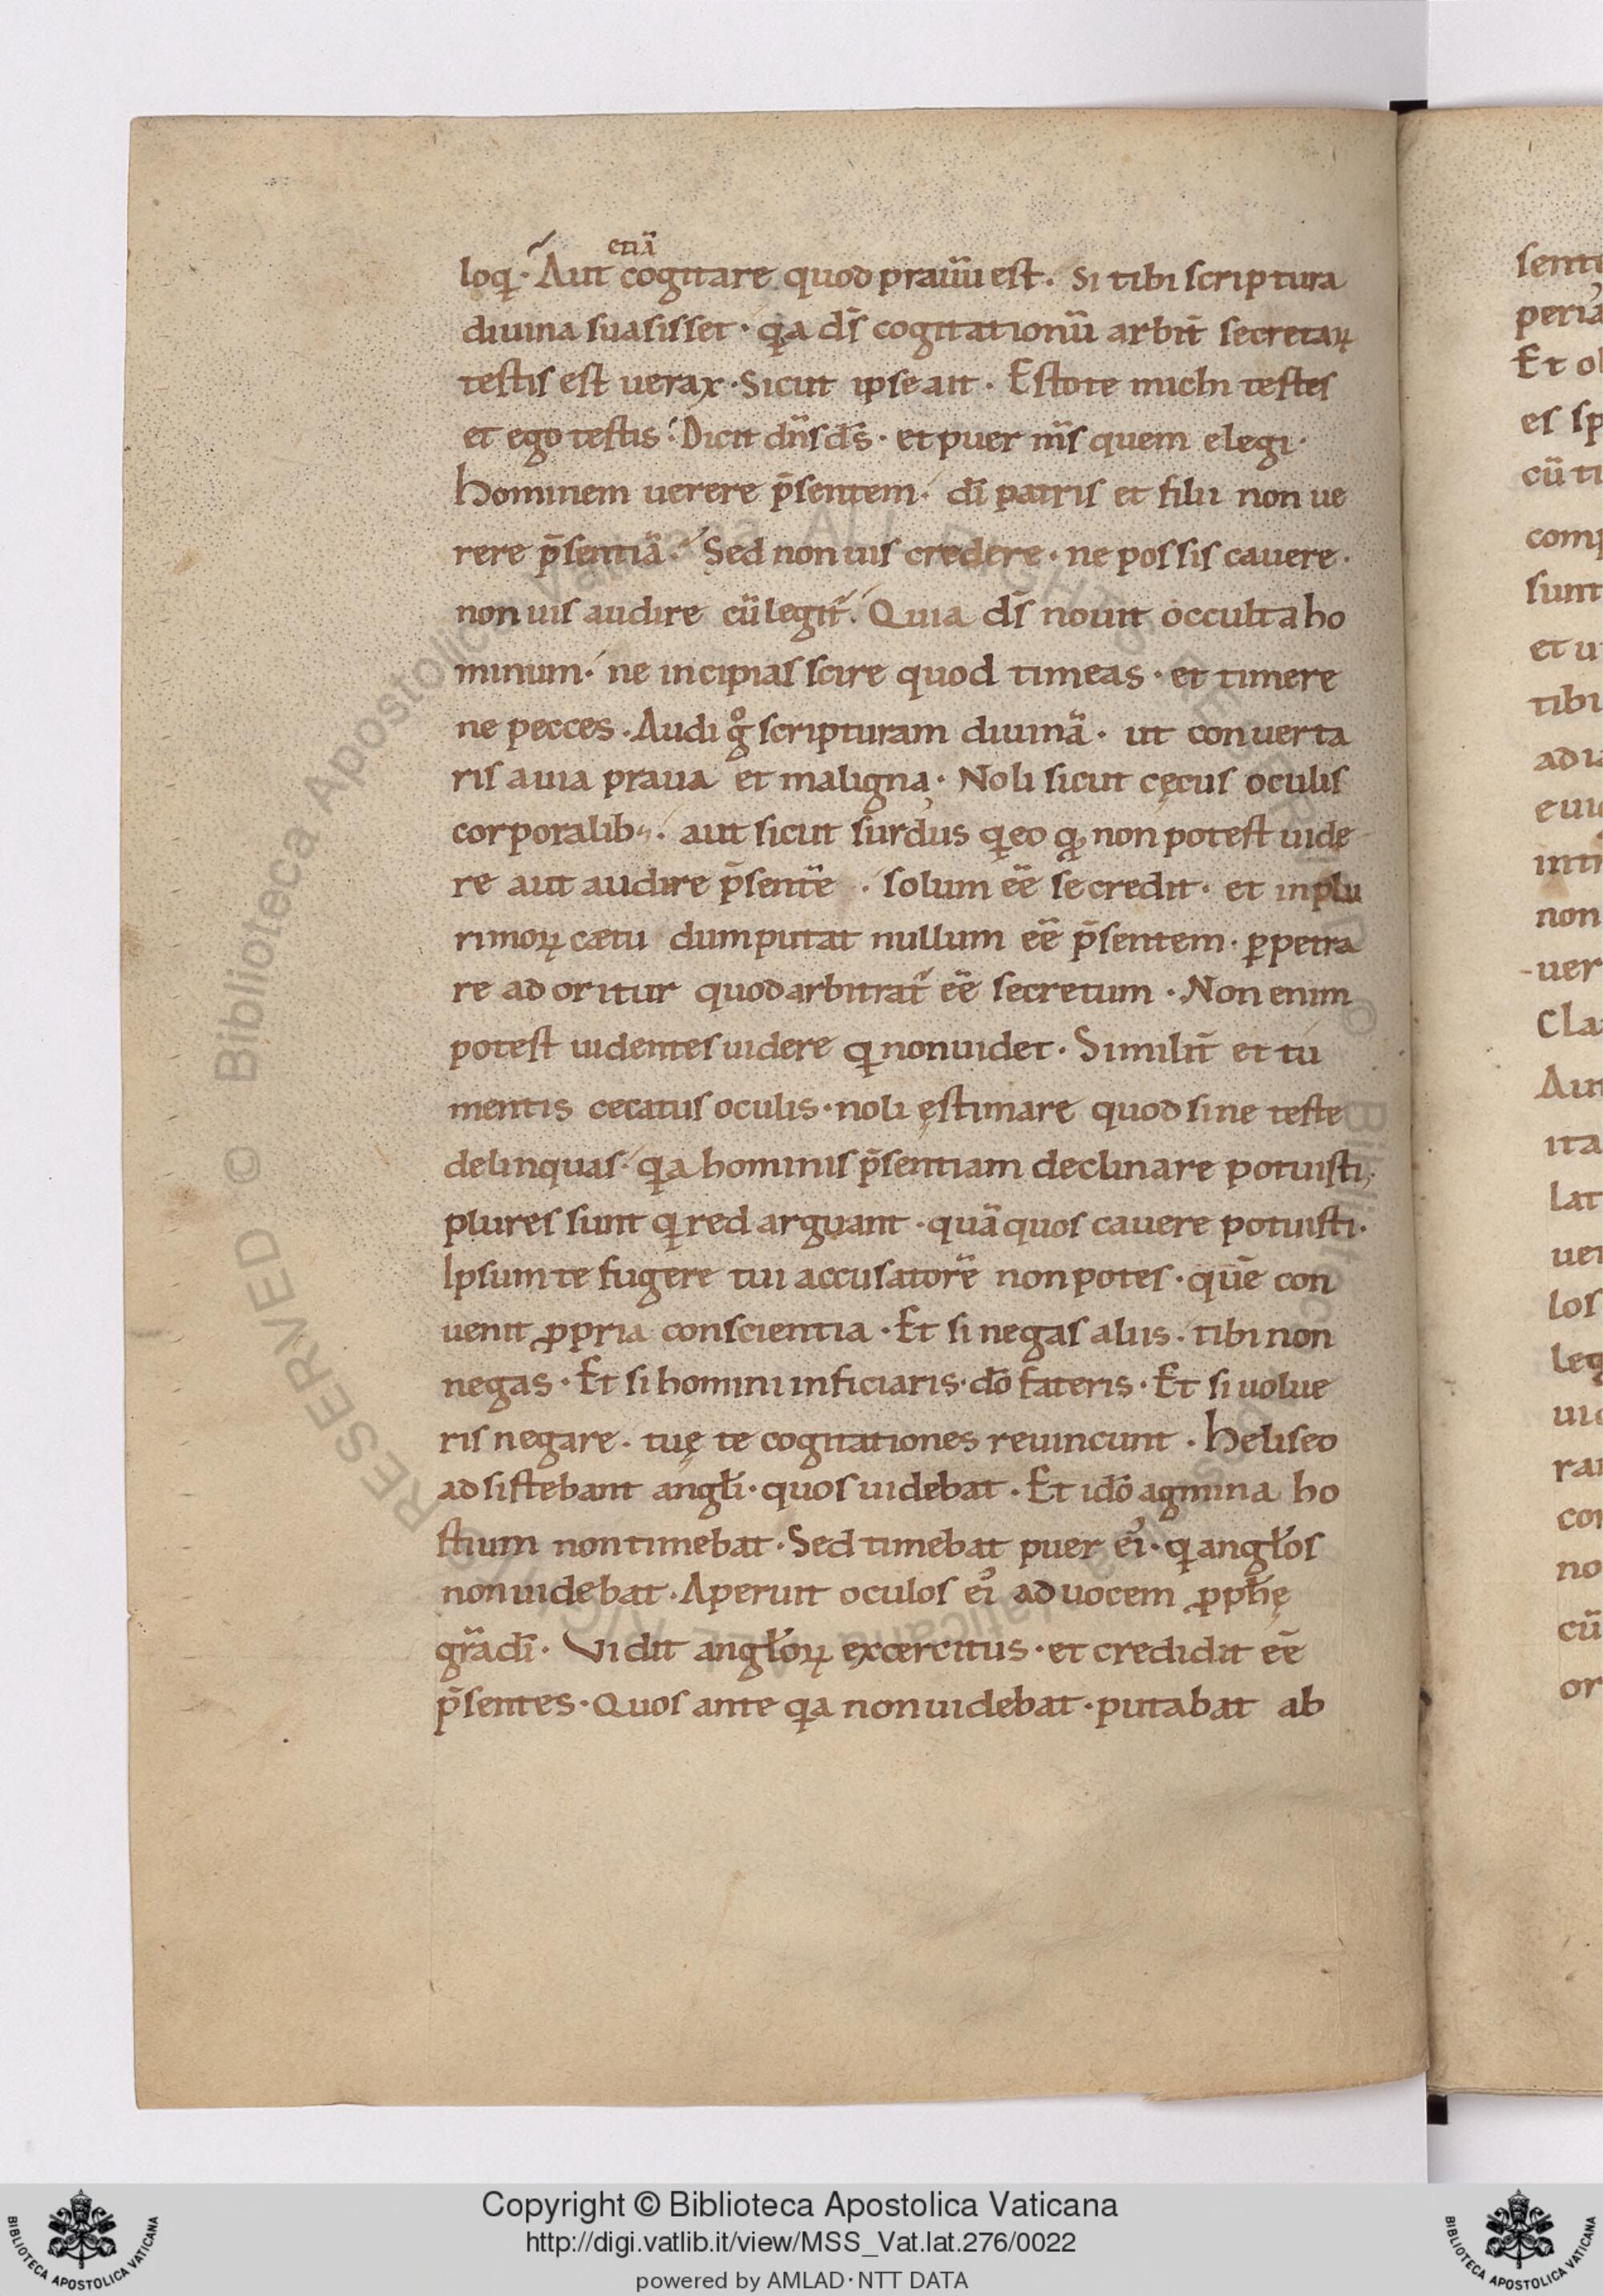 etiā
loq̨. Aut cogitare quod prauū est. Si tibi scriptura
diuina suasisset. qa ds̄ cogitationū arbit̄ secretaꝝ
testis est uerax. Sicut ipse ait. Estote michi testes
et ego testis. Dicit dn̄s ds̄. et puer ms̄ quem elegi.
hominem uerere p̄sentem. dī patris et filii non ue
rere p̄sentiā. Sed non uis credere. ne possis cauere.
non uis audire cū legit̄. Quia ds̄ nouit occulta ho
minum. ne incipias scire quod timeas. et timere
ne pecces. Audi gͦ scripturam diuinā. ut conuerta
ris a uia praua et maligna. Noli sicut cęcus oculis
corporalib; aut sicut surdus q eo ꝙ non potest uide
re aut audire p̄sentē. solum eē se credit. et in plu
rimoꝝ cætu dum putat nullum eē p̄sentem. ꝑpetra
re adoritur quod arbitrat̄ eē secretum. Non enim
potest uidentes uidere q non uidet. Similit̄ et tu
mentis cecatus oculis. noli ęstimare quod sine teste
delinquas. qa hominis p̄sentiam declinare potuisti.
plures sunt q redarguant. quā quos cauere potuisti.
Ipsum te fugere tui accusatorē non potes. quē con
uenit ꝓpria conscientia. Et si negas aliis. tibi non
negas. Et si homini inficiaris. dō fateris. Et si uolue
ris negare. tuę te cogitationes reuincunt. Heliseo
adsistebant angłi. quos uidebat. Et idō agmina ho
stium non timebat. Sed timebat puer ei᾽. q angłos
non uidebat. Aperuit oculos ei᾽ ad uocem ꝓpħę
grā dī. Vidit angłoꝝ excercitus. et credidit eē
p̄sentes. Quos ante qa non uidebat. putabat ab
sent
peria
Et ol
es sp
cū ti
comp
sunt
et u
tibi
ad u
non
uer
Cla
Aut
ita
lat
uer
los
leg
rar
cor
no
cū
or
© Biblioteca Apostolica Vaticana ALL RIGHTS RESERVED
Copyright © Biblioteca Apostolica Vaticana
http://digi.vatlib.it/view/MSS_Vat.lat.276/0022
powered by AMLAD·NTT DATA
BIBLIOTECA APOSTOLICA VATICANA
BIBLIOTECA APOSTOLICA VATICANA